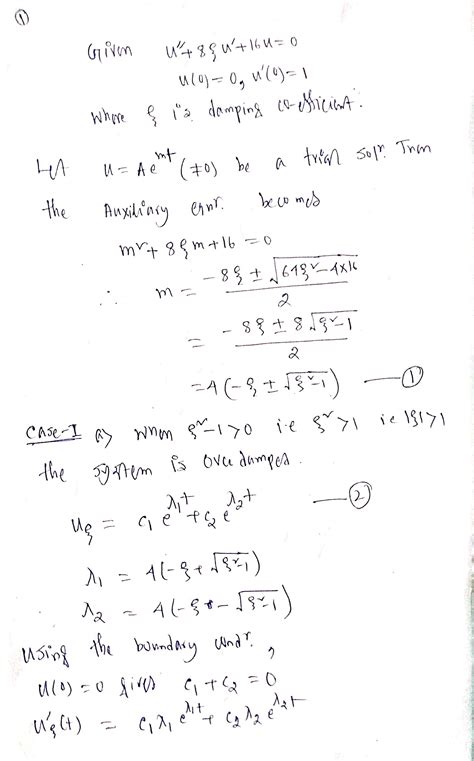 ①
Given u'' + 8ξu' + 16u = 0
u(0) = 0, u'(0) = 1
where ξ is damping co-efficient.
Let u = Ae^{mt} (≠0) be a trial soln. Then
the Auxiliary eqnr. becomes
m² + 8ξm + 16 = 0
∴ m = (-8ξ ± √(64ξ² - 4×16)) / 2
= (-8ξ ± 8√(ξ²-1)) / 2
= 4(-ξ ± √(ξ²-1)) — ①
Case-I a> when ξ²-1>0 i.e ξ²>1 i.e |ξ|>1
the system is overdamped.
u_ξ = c₁e^{λ₁t} + c₂e^{λ₂t} — ②
λ₁ = 4(-ξ + √(ξ²-1))
λ₂ = 4(-ξ - √(ξ²-1))
Using the boundary condr.,
u(0) = 0 gives c₁ + c₂ = 0
u'_ξ(t) = c₁λ₁e^{λ₁t} + c₂λ₂e^{λ₂t}